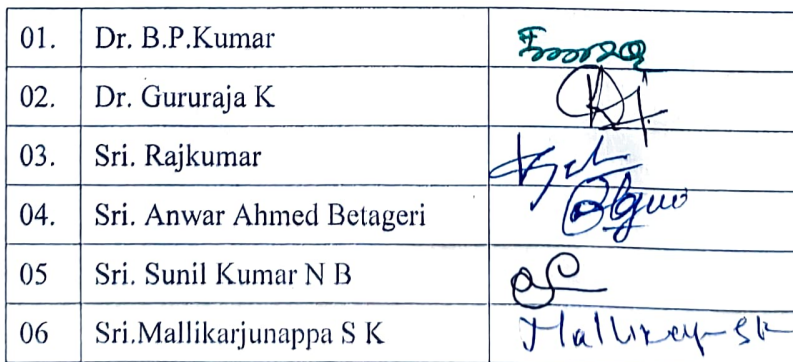 01. Dr. B.P.Kumar
02. Dr. Gururaja K
03. Sri. Rajkumar
04. Sri. Anwar Ahmed Betageri
05 Sri. Sunil Kumar N B
06 Sri.Mallikarjunappa S K